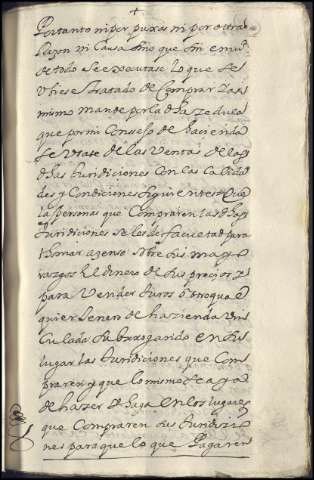 Portanto ni por puxas ni por otra
Razon ni Causa sino que sin emb
de todo se executase lo que se
Vbiese tratado de Comprar Las
mismo mande por la dha zedula
que por mi Consejo de hacienda
se Vsase de las Ventas de las
dhas Juridiciones Con las Calida
des y Condiciones siguientes Que
las personas que Compraren las dhas
Juridiciones se les de facultad para
thomar a zenso sobre sus may
razgos el dinero de sus precios y
para Vender Juros o troque
quier bienes de hazienda Vin
Culada Subrrogando en su
lugar las Juridiciones que Com
praren y que lo mismo se aga
de hasser se haga en los lugares
que Compraren sus Juridicio
nes para que lo que Pagaren